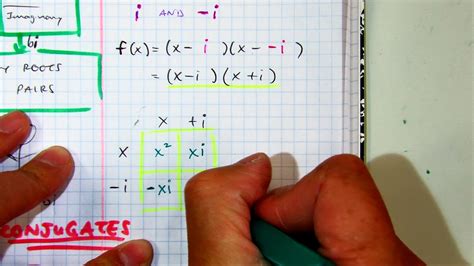 Imaginary
bi
Y ROOTS
PAIRS
bi
CONJUGATES
i AND -i
f(x) = (x- i )(x- -i )
= (x-i)(x+i)
x +i
x x² xi
-i -xi